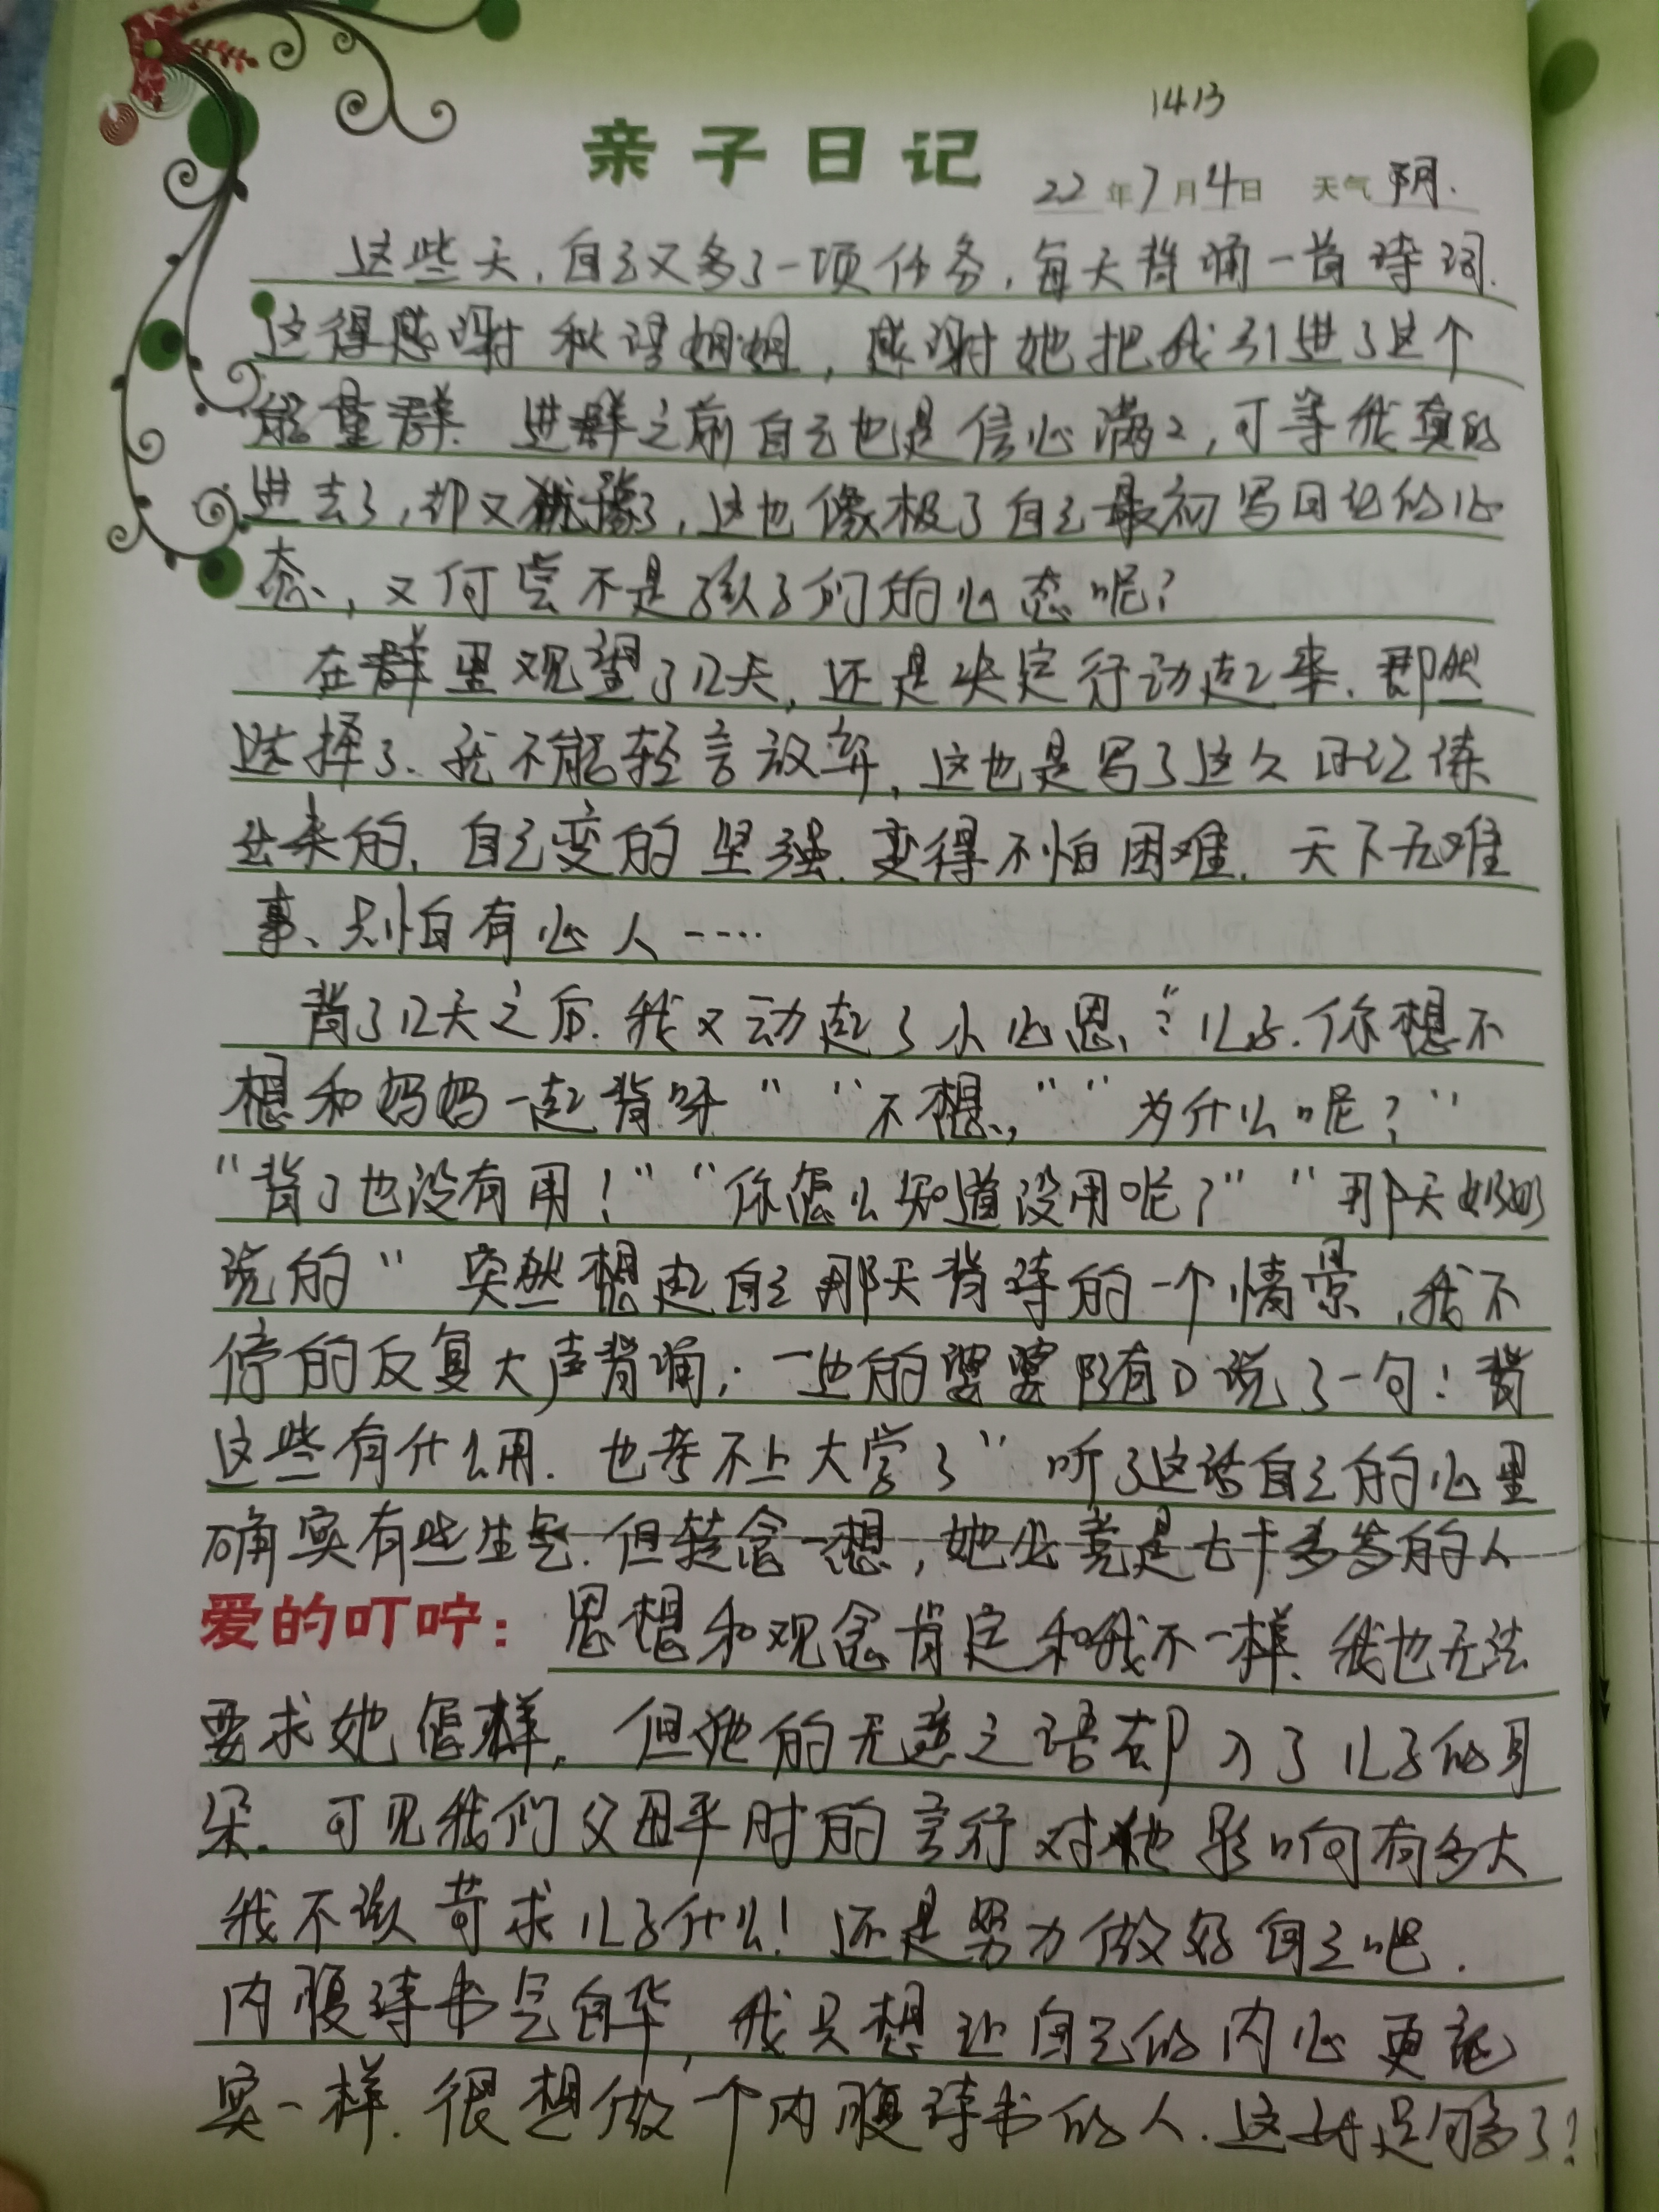 1413
亲子日记
22年7月4日 天气 阴.
这些天,自己又多了一项任务,每天背诵一首诗词.
这得感谢秋谊姐姐,感谢她把我引进了这个
能量群.进群之前自己也是信心满々,可等我真的
进去了,却又犹豫了,这也像极了自己最初写日记的心
态,又何尝不是孩子们的心态呢?
在群里观望了几天,还是决定行动起来.既然
选择了.我不能轻言放弃,这也是写了这久日记练
出来的,自己变的坚强.变得不怕困难.天下无难
事、只怕有心人……
背了几天之后.我又动起了小心思、:“儿子.你想不
想和妈妈一起背呀”“不想,”“为什么呢?”
“背了也没有用!”“你怎么知道没用呢?”“那天奶奶
说的”突然想起自己那天背诗的一个情景,我不
停的反复大声背诵;一边的婆婆随口说了一句:背
这些有什么用.也考不上大学了”听了这话自己的心里
确实有些生气.但转念一想,她毕竟是七十多岁的人
爱的叮咛:思想和观念肯定和我不一样、我也无法
要求她怎样,但她的无意之语却入了儿子的耳
朵.可见我们父母平时的言行对他影响有多大
我不该苛求儿子什么!还是努力做好自己吧.
内腹诗书气自华,我只想让自己的内心更充
实一样.很想做一个内腹诗书的人.这对足够了?